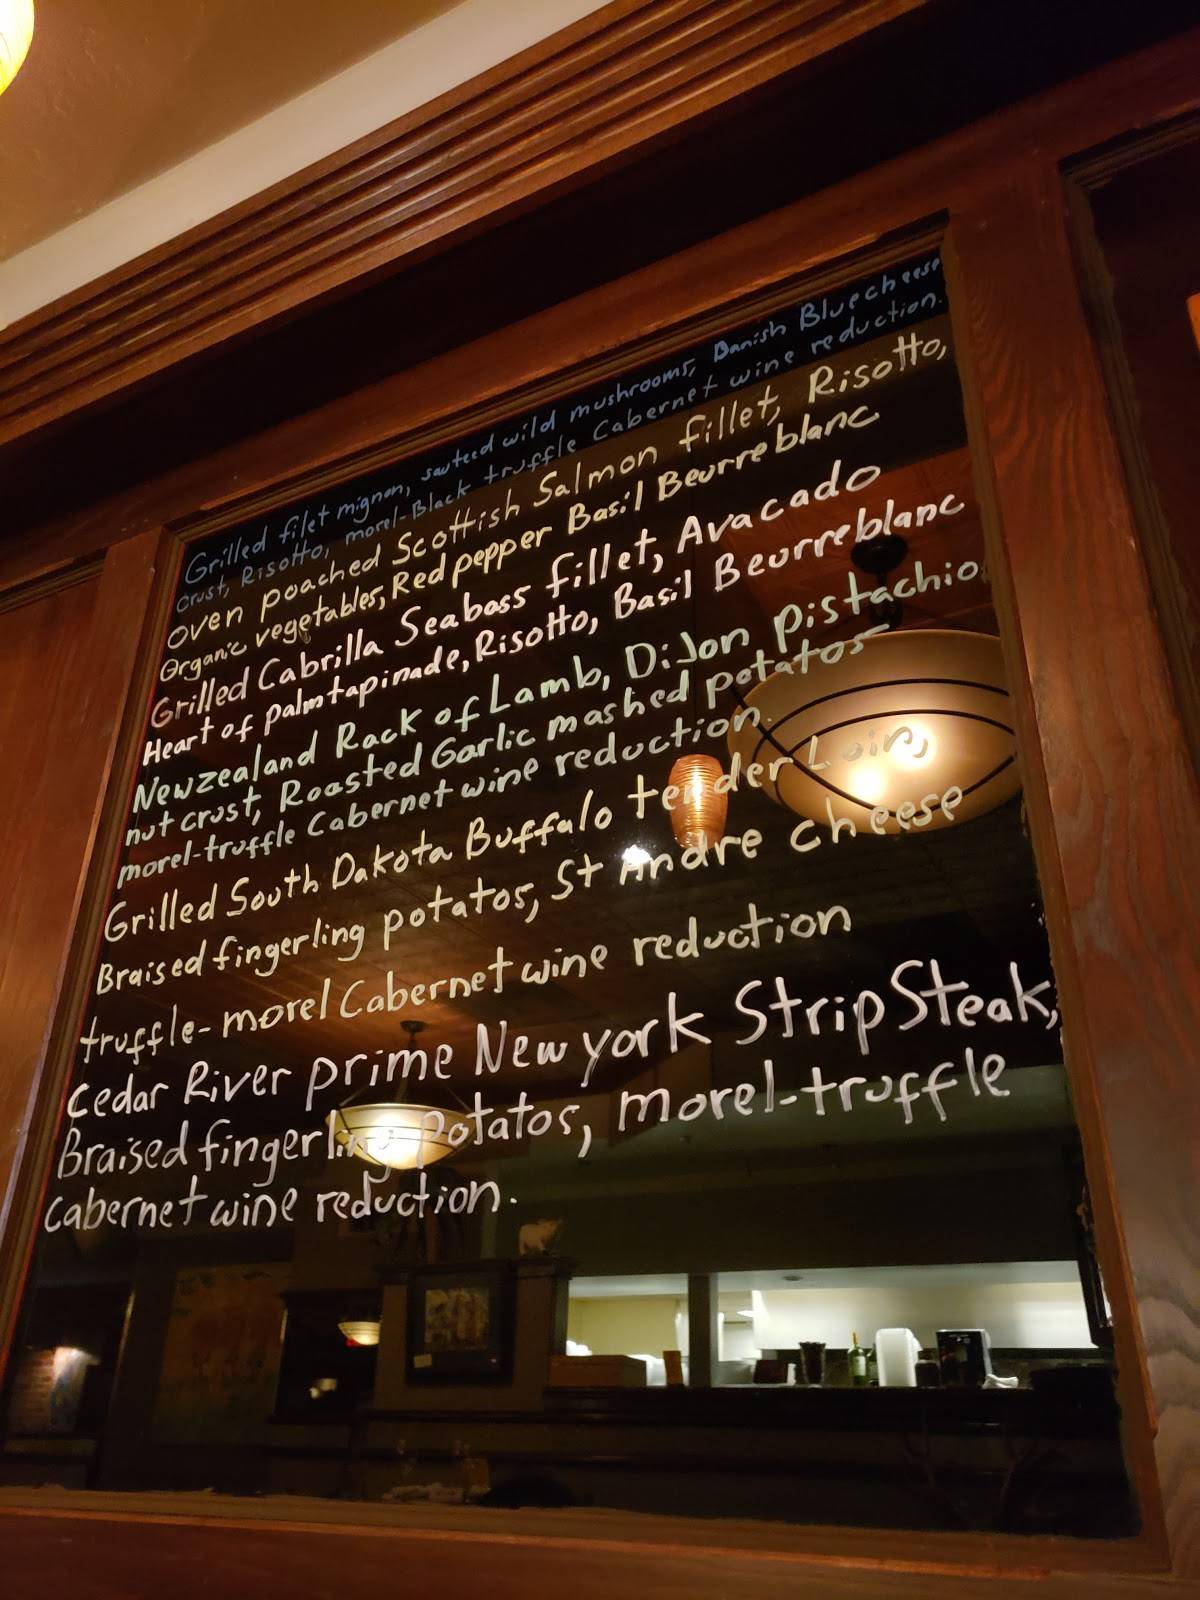 Grilled filet mignon, sauteed wild mushrooms, Danish Bluecheese
crust, Risotto, morel-Black truffle Cabernet wine reduction.
oven poached Scottish Salmon fillet, Risotto,
Organic vegetables, Red pepper Basil Beurreblanc
Grilled Cabrilla Seabass fillet, Avacado
Heart of palmtapinade, Risotto, Basil Beurreblanc
Newzealand Rack of Lamb, DiJon pistachio
nut crust, Roasted Garlic mashed potatos
morel-truffle Cabernet wine reduction.
Grilled South Dakota Buffalo tender Loin,
Braised fingerling potatos, St Andre cheese
truffle-morel Cabernet wine reduction
Cedar River prime New york Strip Steak,
Braised fingerling potatos, morel-truffle
cabernet wine reduction.